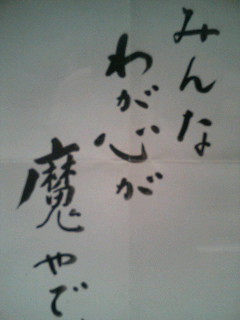 みんな
わが心が
魔やで、